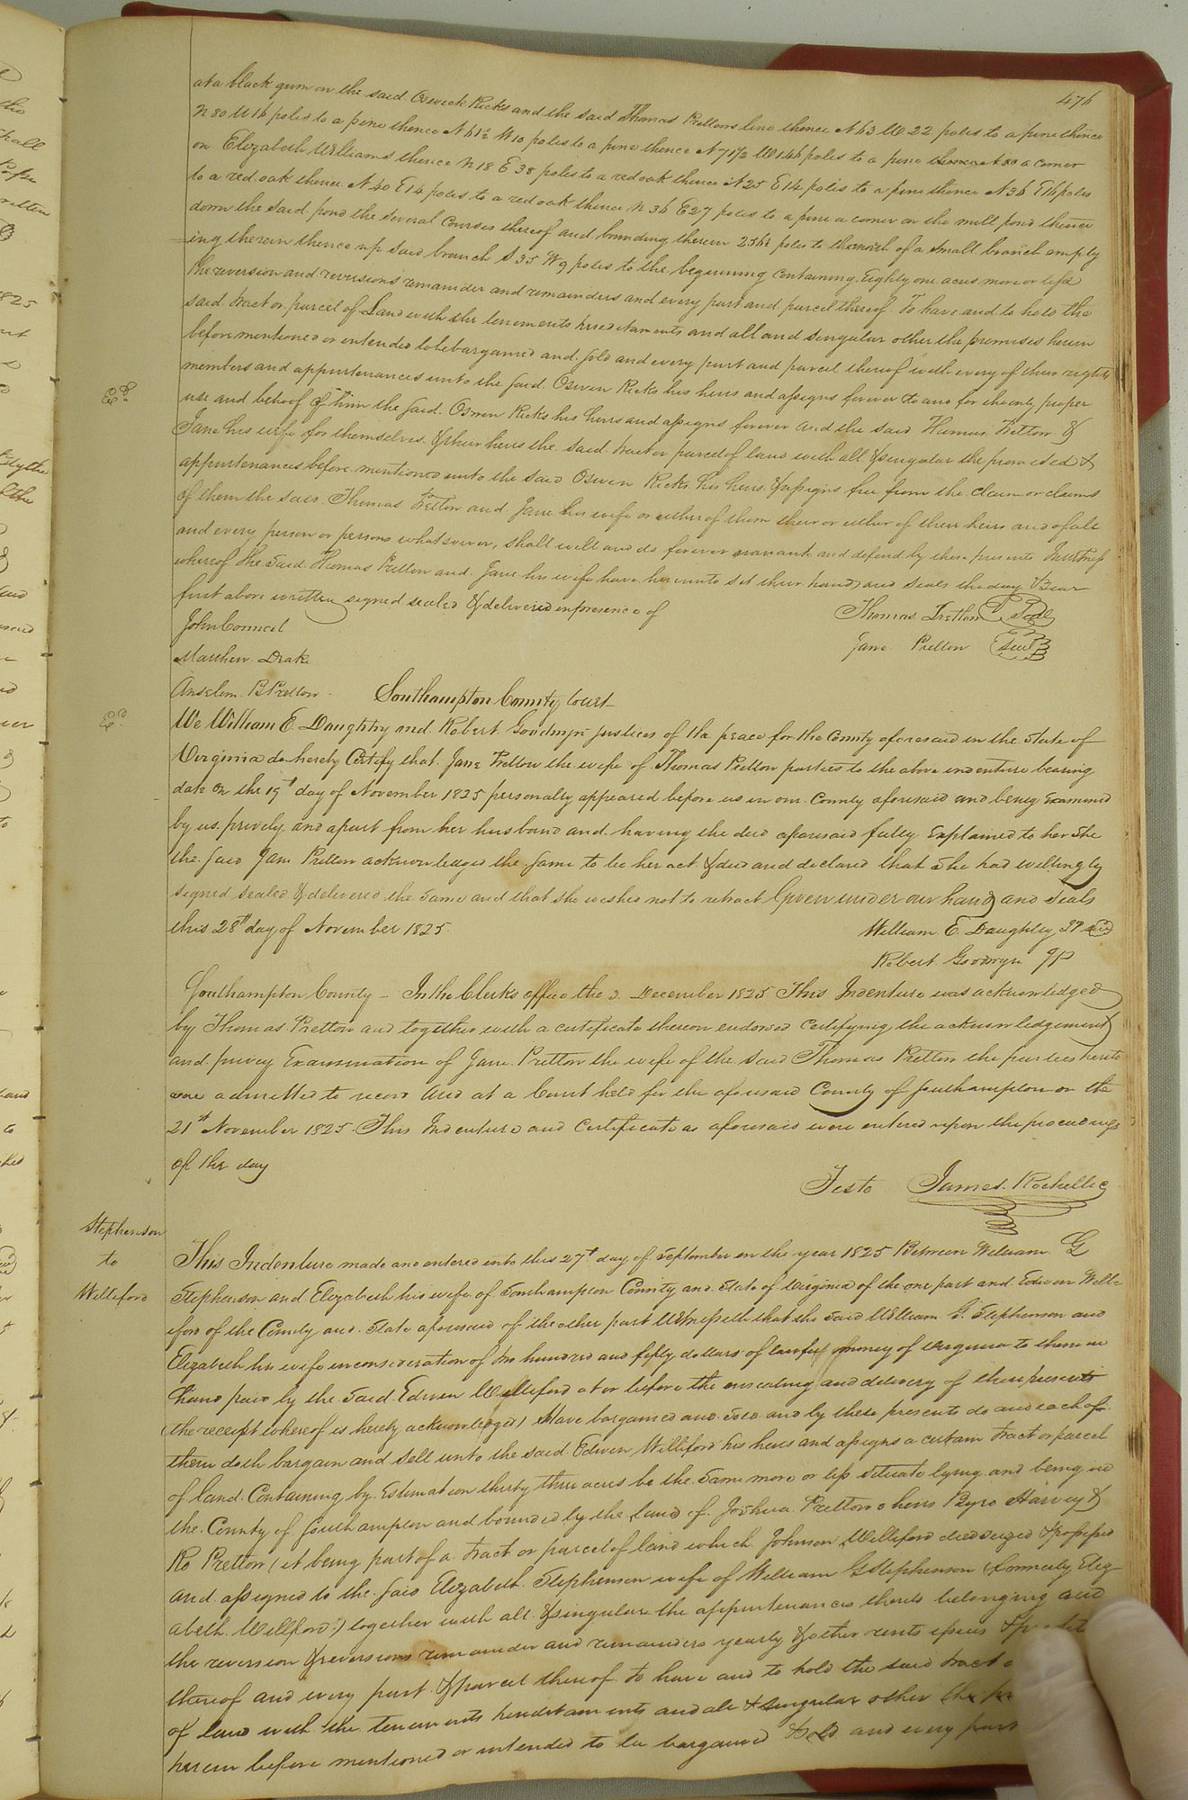 476
at a black gum on the said Oswin Ricks and the said Thomas Prettons line thence N 63 W 22 poles to a pine thence
N 80 W 16 poles to a pine thence N 61½ W 10 poles to a pine thence N 71½ W 146 poles to a pine a corner
on Elizabeth Williams thence N 18 E 38 poles to a red oak thence N 25 E 14 poles to a pine thence N 36 E 16 poles
to a red oak thence N 40 E 14 poles to a red oak thence N 36 E 27 poles to a pine a corner on the mill pond thence
down the said pond the several courses thereof and bounding therein poles to the mouth of a small branch empty
ing therein thence up said branch S 35 W 9 poles to the beginning containing Eighty one acres more or less
the reversion and reversions remainder and remainders and every part and parcel thereof To have and to hold the
said tract or parcel of Land with the tenements hereditaments and all and singular other the premises herein
before mentioned or intended to be bargained and sold and every part and parcel thereof with every of their rights
members and appurtenances unto the said Oswin Ricks his heirs and assigns forever to and for the only proper
use and behoof of him the said Oswin Ricks his heirs and assigns forever and the said Thomas Pretton &
Jane his wife for themselves & their heirs the said tract or parcel of land with all & singular the premises &
appurtenances before mentioned unto the said Oswin Ricks his heirs & assigns free from the claim or claims
of them the said Thomas Pretton and Jane his wife or either of them their or either of their heirs and of all
and every person or persons whatsoever, shall will and do forever warrant and defend by these presents In witness
whereof the said Thomas Pretton and Jane his wife have hereunto set their hands and seals the day & year
first above written signed sealed & delivered in presence of
Thomas Pretton Seal
John Council
Jane Pretton Seal
Matthew Drake
Anselm B Pretton
Southampton County Court
We William E Daughtry and Robert Goodwyn justices of the peace for the County aforesaid in the State of
Virginia do hereby Certify that Jane Pretton the wife of Thomas Pretton parties to the above indenture bearing
date on the 19th day of November 1825 personally appeared before us in our County aforesaid and being Examined
by us privily and apart from her husband and having the deed aforesaid fully Explained to her She
the said Jane Pretton acknowledged the same to be her act & deed and declared that she had willingly
signed sealed & delivered the same and that she wished not to retract Given under our hands and seals
this 28th day of November 1825
William E. Daughtry JP Seal
Robert Goodwyn JP
Southampton County – In the Clerks office the 3 December 1825 This Indenture was acknowledged
by Thomas Pretton and together with a certificate thereon endorsed Certifying the acknowledgement
and privy Examination of Jane Pretton the wife of the said Thomas Pretton the parties hereto
was admitted to record And at a Court held for the aforesaid County of Southampton on the
21st November 1825 This Indenture and Certificate as aforesaid were entered upon the proceedings
of the day
Teste James Rochelle
Stephenson
to
Williford
This Indenture made and entered into this 27th day of September in the year 1825 Between William G
Stephenson and Elizabeth his wife of Southampton County and State of Virginia of the one part and Edwin Will
iford of the County and State aforesaid of the other part Witnesseth that the said William G. Stephenson and
Elizabeth his wife in consideration of two hundred and fifty dollars of lawful money of Virginia to them in
hand paid by the said Edwin Williford at or before the ensealing and delivery of these presents
(the receipt whereof is hereby acknowledged) Have bargained and sold and by these presents do and each of
them doth bargain and sell unto the said Edwin Williford his heirs and assigns a certain tract or parcel
of land Containing by Estimation thirty three acres be the same more or less situate lying and being in
the County of Southampton and bounded by the land of Joshua Pretton Harvey &
Ro Pretton (it being part of a tract or parcel of land which Johnson Williford died seized & possessed
and assigned to the said Elizabeth Stephenson wife of William G Stephenson (formerly Eliz
abeth Williford) together with all & singular the appurtenances thereto belonging and
the reversion & reversions remainder and remainders yearly & other rents issues &
thereof and every part & parcel thereof to have and to hold the said tract
of land with the tenements hereditaments and all & singular other the
herein before mentioned or intended to be bargained & sold and every part